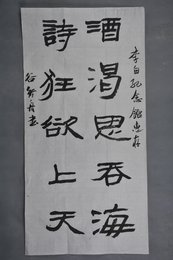 酒渴思吞海
詩狂欲上天
李白紀念館惠存